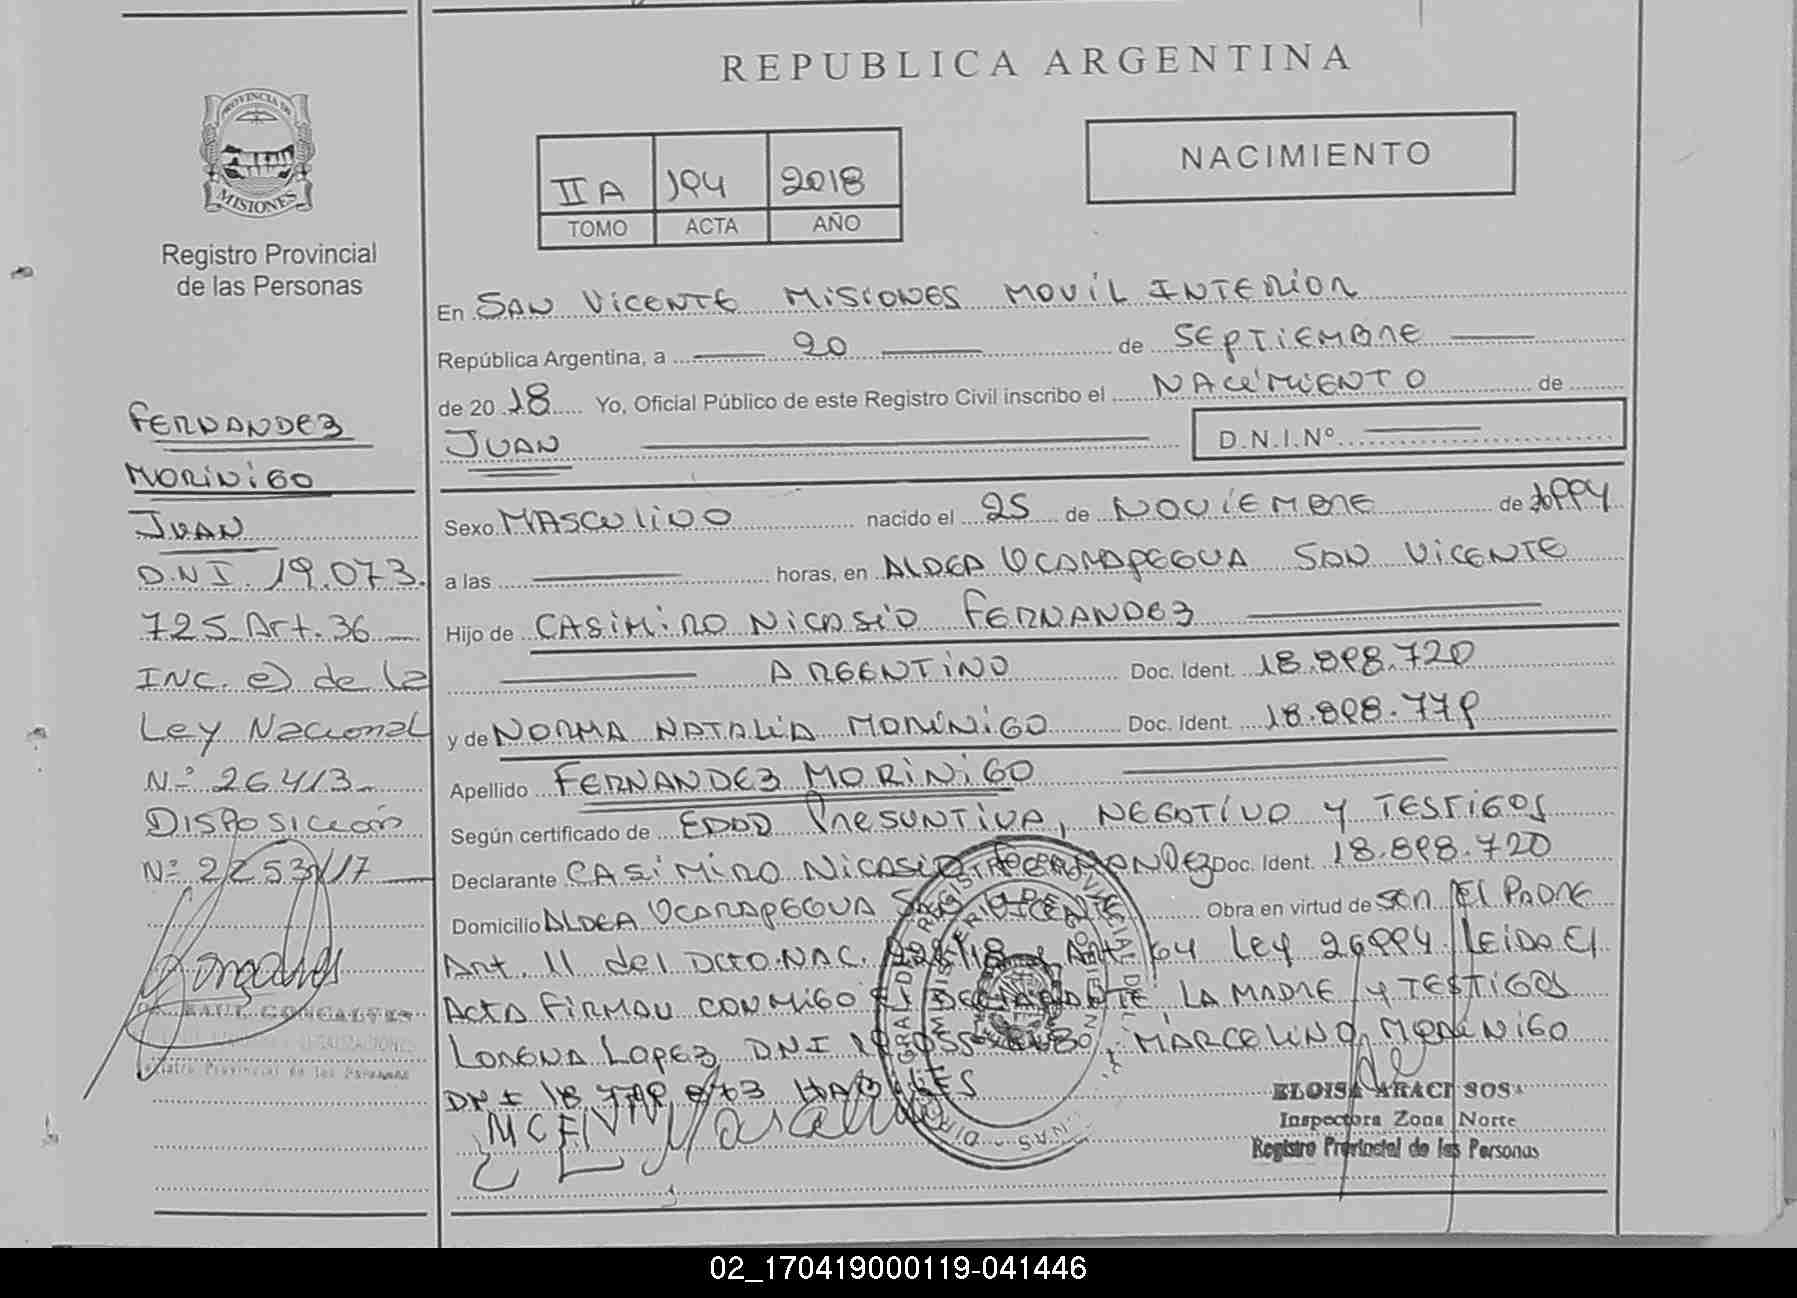 REPUBLICA ARGENTINA
PROVINCIA DE
MISIONES
Registro Provincial
de las Personas
II A 194 2018
TOMO ACTA AÑO
NACIMIENTO
En SAN VICENTE MISIONES MOVIL INTERIOR
República Argentina, a 20 de SEPTIEMBRE
de 2018 Yo, Oficial Público de este Registro Civil inscribo el NACIMIENTO de
JUAN D.N.I.Nº
Sexo MASCULINO nacido el 25 de NOVIEMBRE de 1994
a las horas, en ALDEA UCARAPEGUA SAN VICENTE
Hijo de CASIMIRO NICASIO FERNANDEZ
ARGENTINO Doc. Ident. 18.898.720
y de NORMA NATALIA MORINIGO Doc. Ident. 18.898.779
Apellido FERNANDEZ MORINIGO
Según certificado de EDAD PRESUNTIVA, NEGATIVO Y TESTIGOS
Declarante CASIMIRO NICASIO FERNANDEZ Doc. Ident. 18.898.720
Domicilio ALDEA UCARAPEGUA SAN VICENTE Obra en virtud de SER EL PADRE
Art. 11 del DCTO.NAC. Art 64 Ley 26994 LEIDA EL
ACTA FIRMAN CONMIGO EL DECLARANTE LA MADRE Y TESTIGOS
LORENA LOPEZ DNI MARCELINO MORINIGO
DNI 18
ELOISA ARACI SOSA
Inspectora Zona Norte
Registro Provincial de las Personas
FERNANDEZ
MORINIGO
JUAN
D.N.I. 19.073.
725 Art. 36
INC. e) de la
Ley Nacional
N.º 26413
DISPOSICIÓN
Nº 2253/17
RAUL GONCALVES
LEGALIZACIONES
Registro Provincial de las Personas
02_170419000119-041446